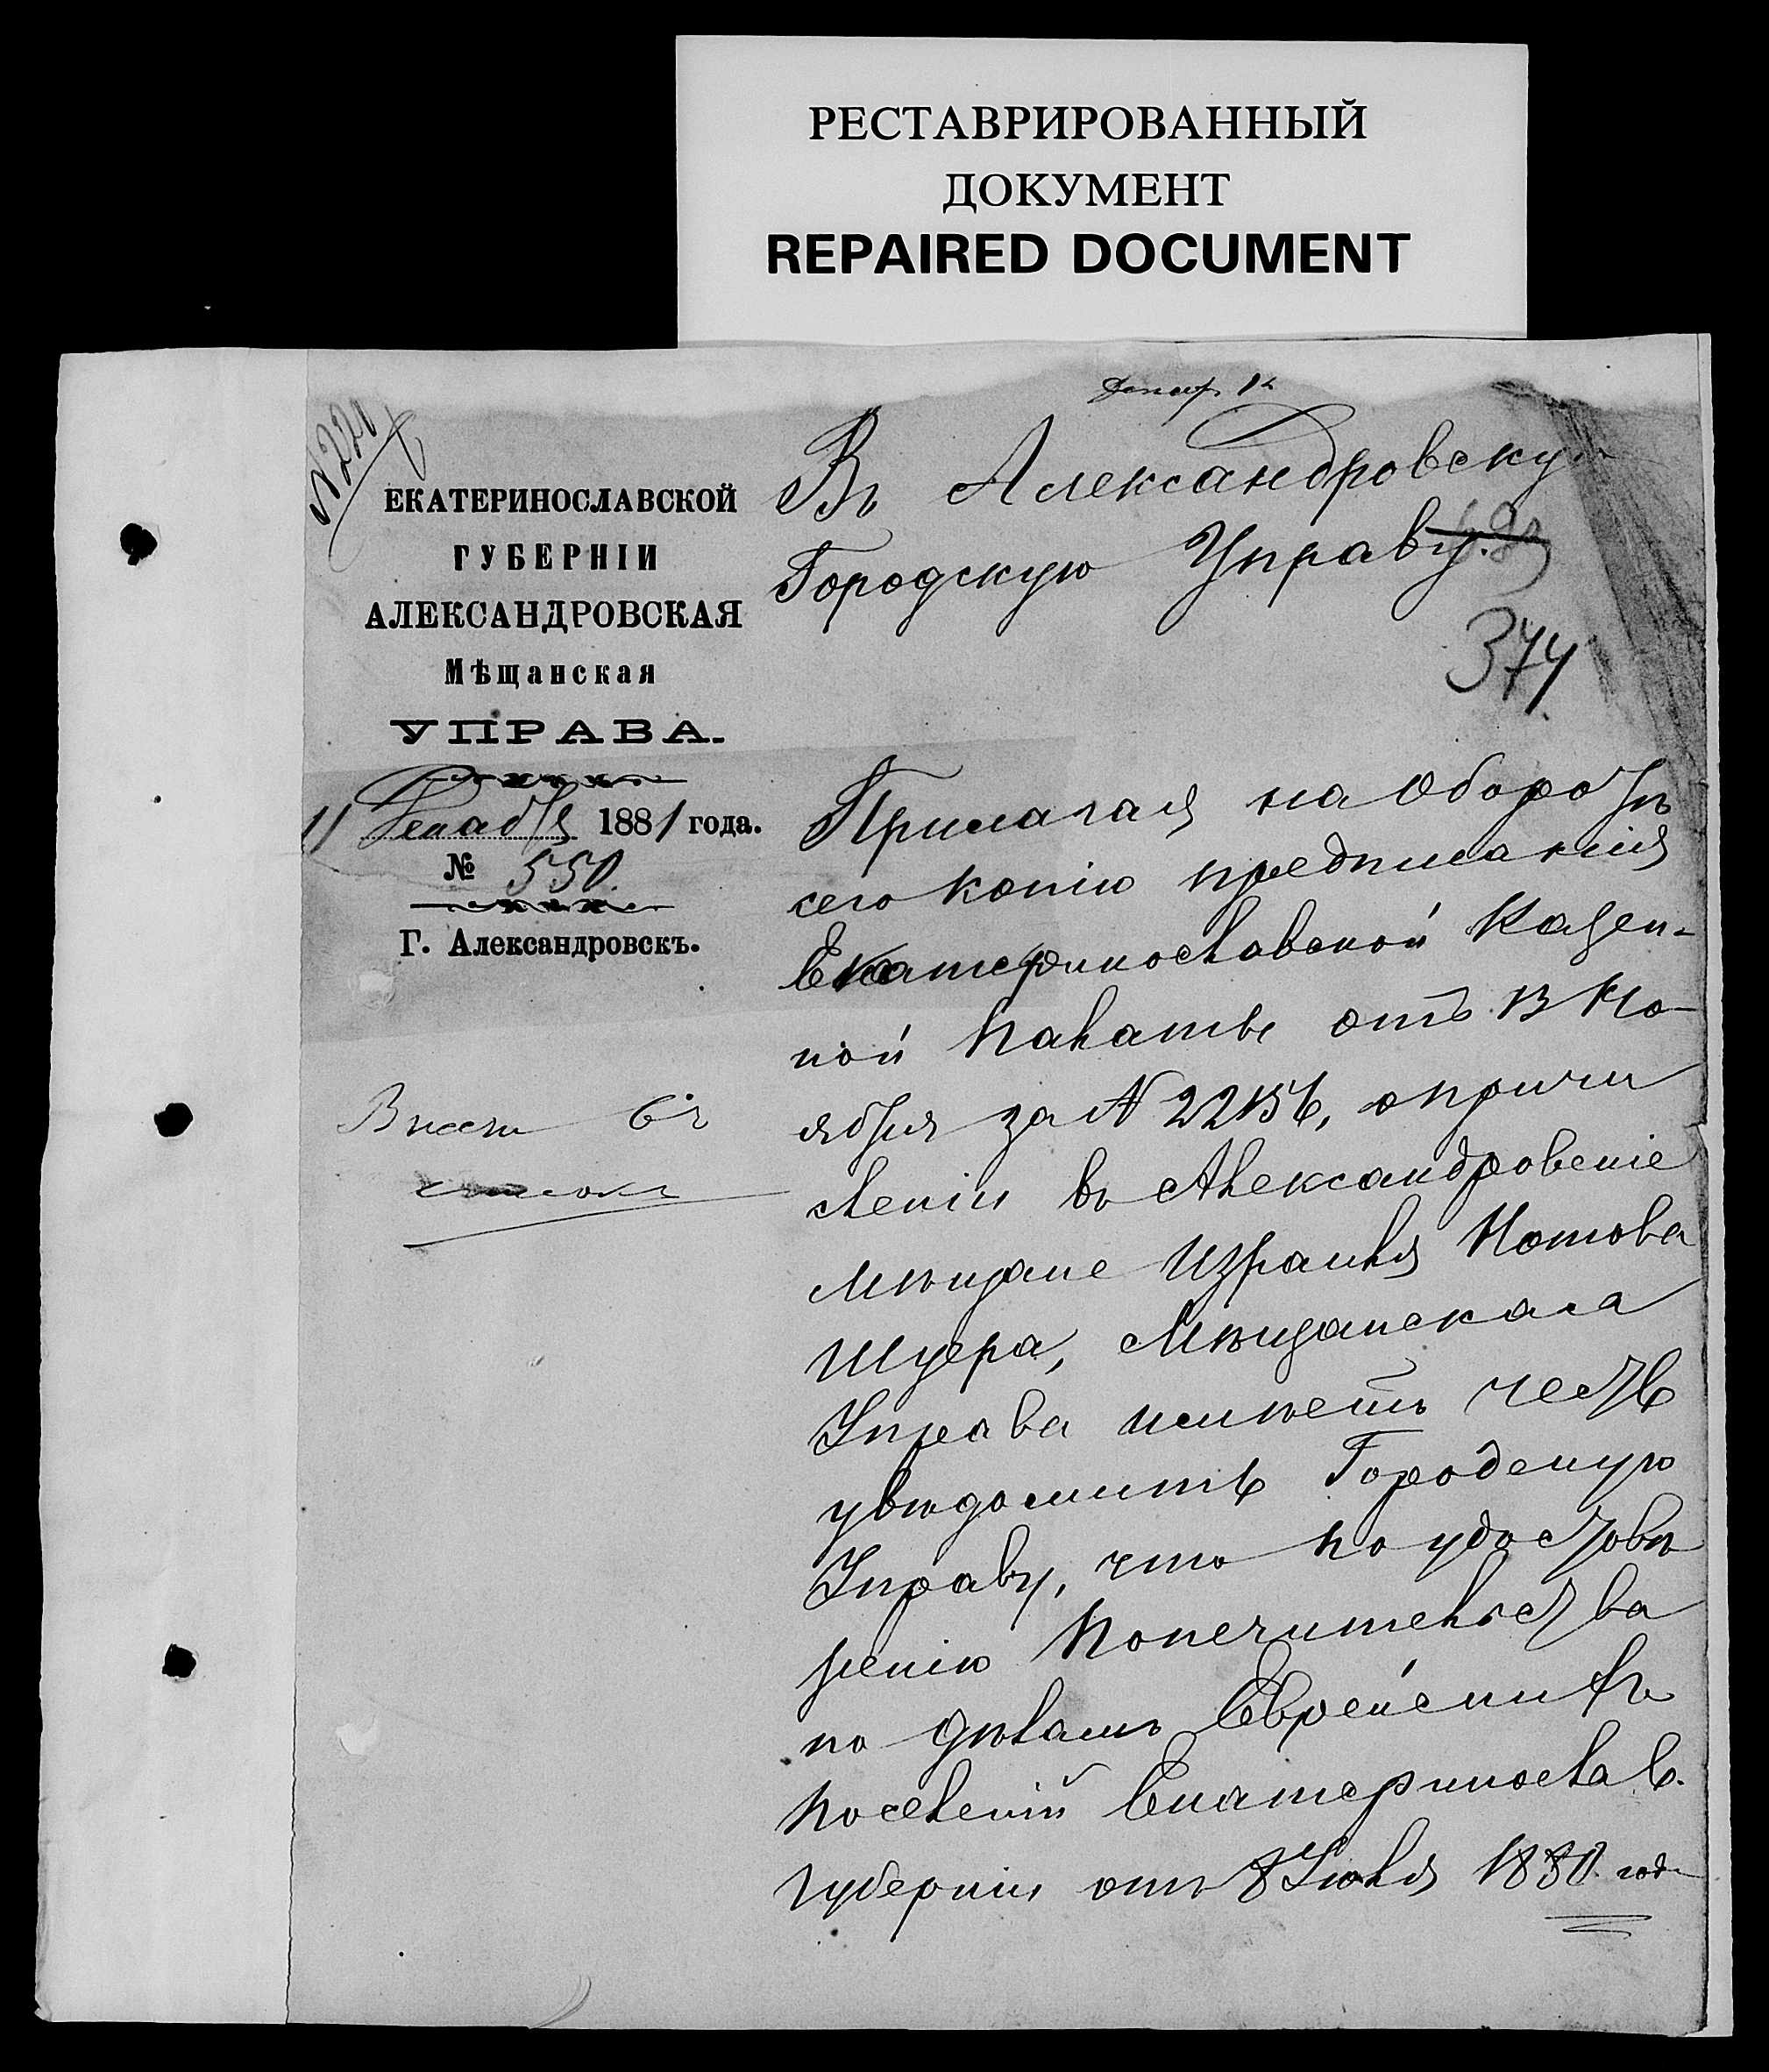 РЕСТАВРИРОВАННЫЙ
ДОКУМЕНТ
REPAIRED DOCUMENT
Декаб. 12
№ 221
ЕКАТЕРИНОСЛАВСКОЙ
ГУБЕРНІИ
АЛЕКСАНДРОВСКАЯ
Мѣщанская
УПРАВА.
11 Декабря 1881 года.
№ 550.
Г. Александровскъ.
Внести въ
списокъ
Въ Александровскую
Городскую Управу.
374
Прилагая на оборотѣ
сего копію предписанія
Екатеринославской Казен-
ной Палаты отъ 13 Но-
ября за № 22156, о причи
сленіи въ Александровскіе
мѣщане Израиля Нотова
Шуера, Мѣщанская
Управа имѣетъ честь
увѣдомить Городскую
Управу, что по удостовѣ
ренію Попечительства
по дѣламъ Еврейскихъ
поселеній Екатеринослав.
губерніи отъ 8 Іюля 1880 года